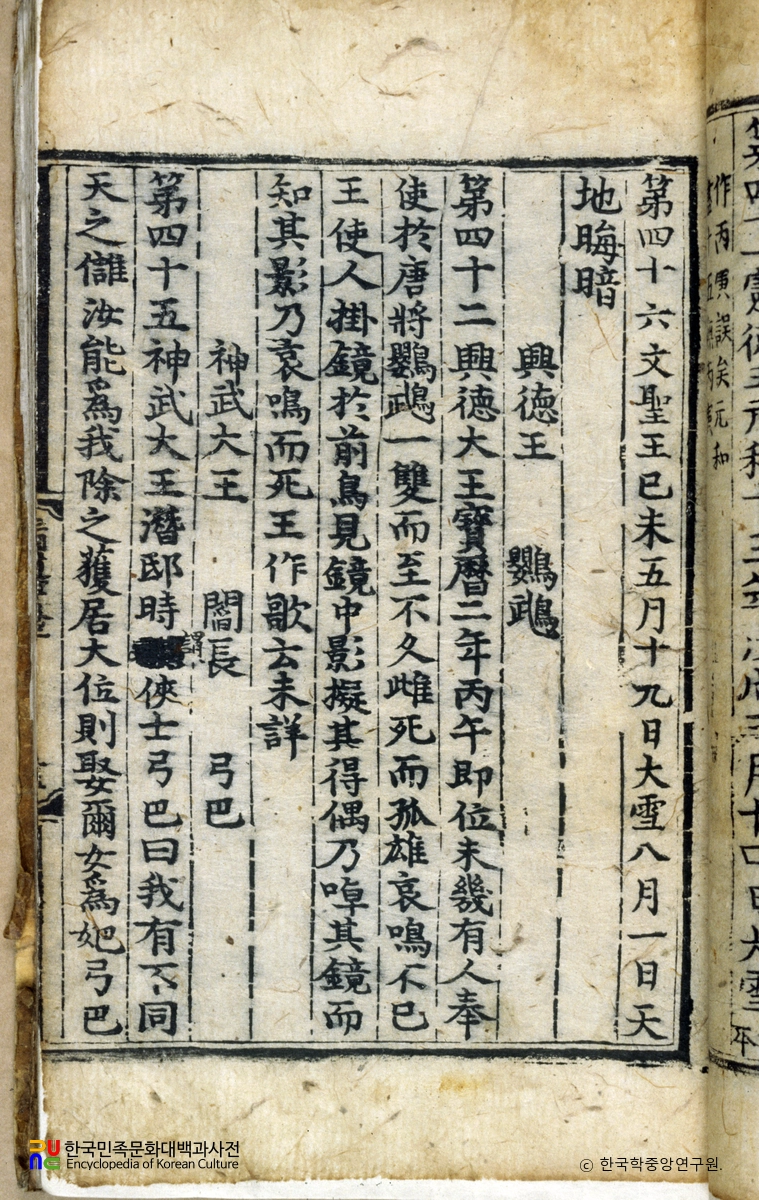 第四十六文聖王已未五月十九日大雪八月一日天
地晦暗
興德王 鸚鵡
第四十二興德大王寶曆二年丙午即位未幾有人奉
使於唐將鸚鵡一雙而至不久雌死而孤雄哀鳴不已
王使人掛鏡於前鳥見鏡中影擬其得偶乃啅其鏡而
知其影乃哀鳴而死王作歌云未詳
神武大王 閻長 弓巴
第四十五神武大王潛邸時謂俠士弓巴曰我有不同
天之讎汝能爲我除之獲居大位則娶爾女爲妃弓巴
한국민족문화대백과사전
Encyclopedia of Korean Culture
© 한국학중앙연구원.